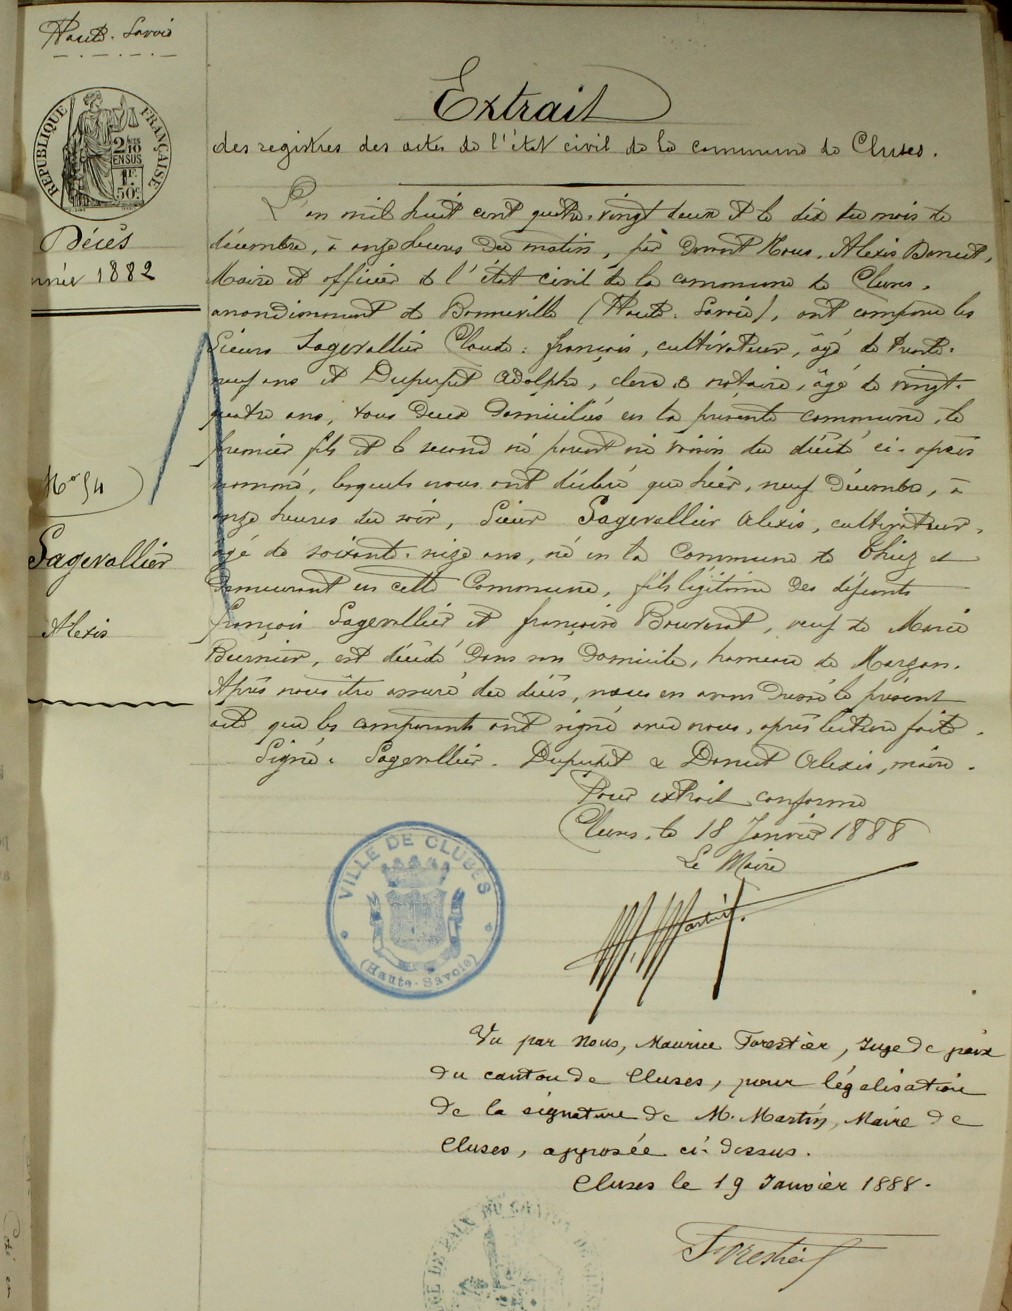 Haute-Savoie
RÉPUBLIQUE FRANÇAISE
2/10 EN SUS
1F 50c
Décès
année 1882
N° 54
Sagevallier
Alexis
Extrait
des registres des actes de l'état civil de la commune de Cluses.
L'an mil huit cent quatre-vingt deux et le dix du mois de
décembre, à onze heures du matin, par devant Nous, Alexis Donat,
Maire et officier de l'état civil de la commune de Cluses,
arrondissement de Bonneville (Haute-Savoie), ont comparu les
Sieurs Sagevallier Claude-françois, cultivateur, âgé de trente-
neuf ans et Dupuget Adolphe, clerc de notaire, âgé de vingt-
quatre ans, tous deux domiciliés en la présente commune, le
premier fils et le second ni parent ni voisin du décédé ci-après
nommé, lesquels nous ont déclaré que hier, neuf décembre, à
onze heures du soir, Sieur Sagevallier Alexis, cultivateur,
âgé de soixante-seize ans, né en la Commune de Thiez et
demeurant en cette Commune, fils légitime des défunts
françois Sagevallier et françoise Bouverat, veuf de Marie
Burnier, est décédé dans son domicile, hameau de Marzan.
Après nous être assuré du décès, nous en avons dressé le présent
acte que les comparants ont signé avec nous, après lecture faite.
Signé: Sagevallier. Dupuget & Donat Alexis, maire.
Pour extrait conforme
Cluses, le 18 Janvier 1888
Le Maire
M. Martin
VILLE DE CLUSES
(Haute-Savoie)
Vu par Nous, Maurice Forestier, Juge de paix
du canton de Cluses, pour légalisation
de la signature de M. Martin, Maire de
Cluses, apposée ci-dessus.
Cluses le 19 Janvier 1888.
Forestier
DE PAIX DU CANTON DE